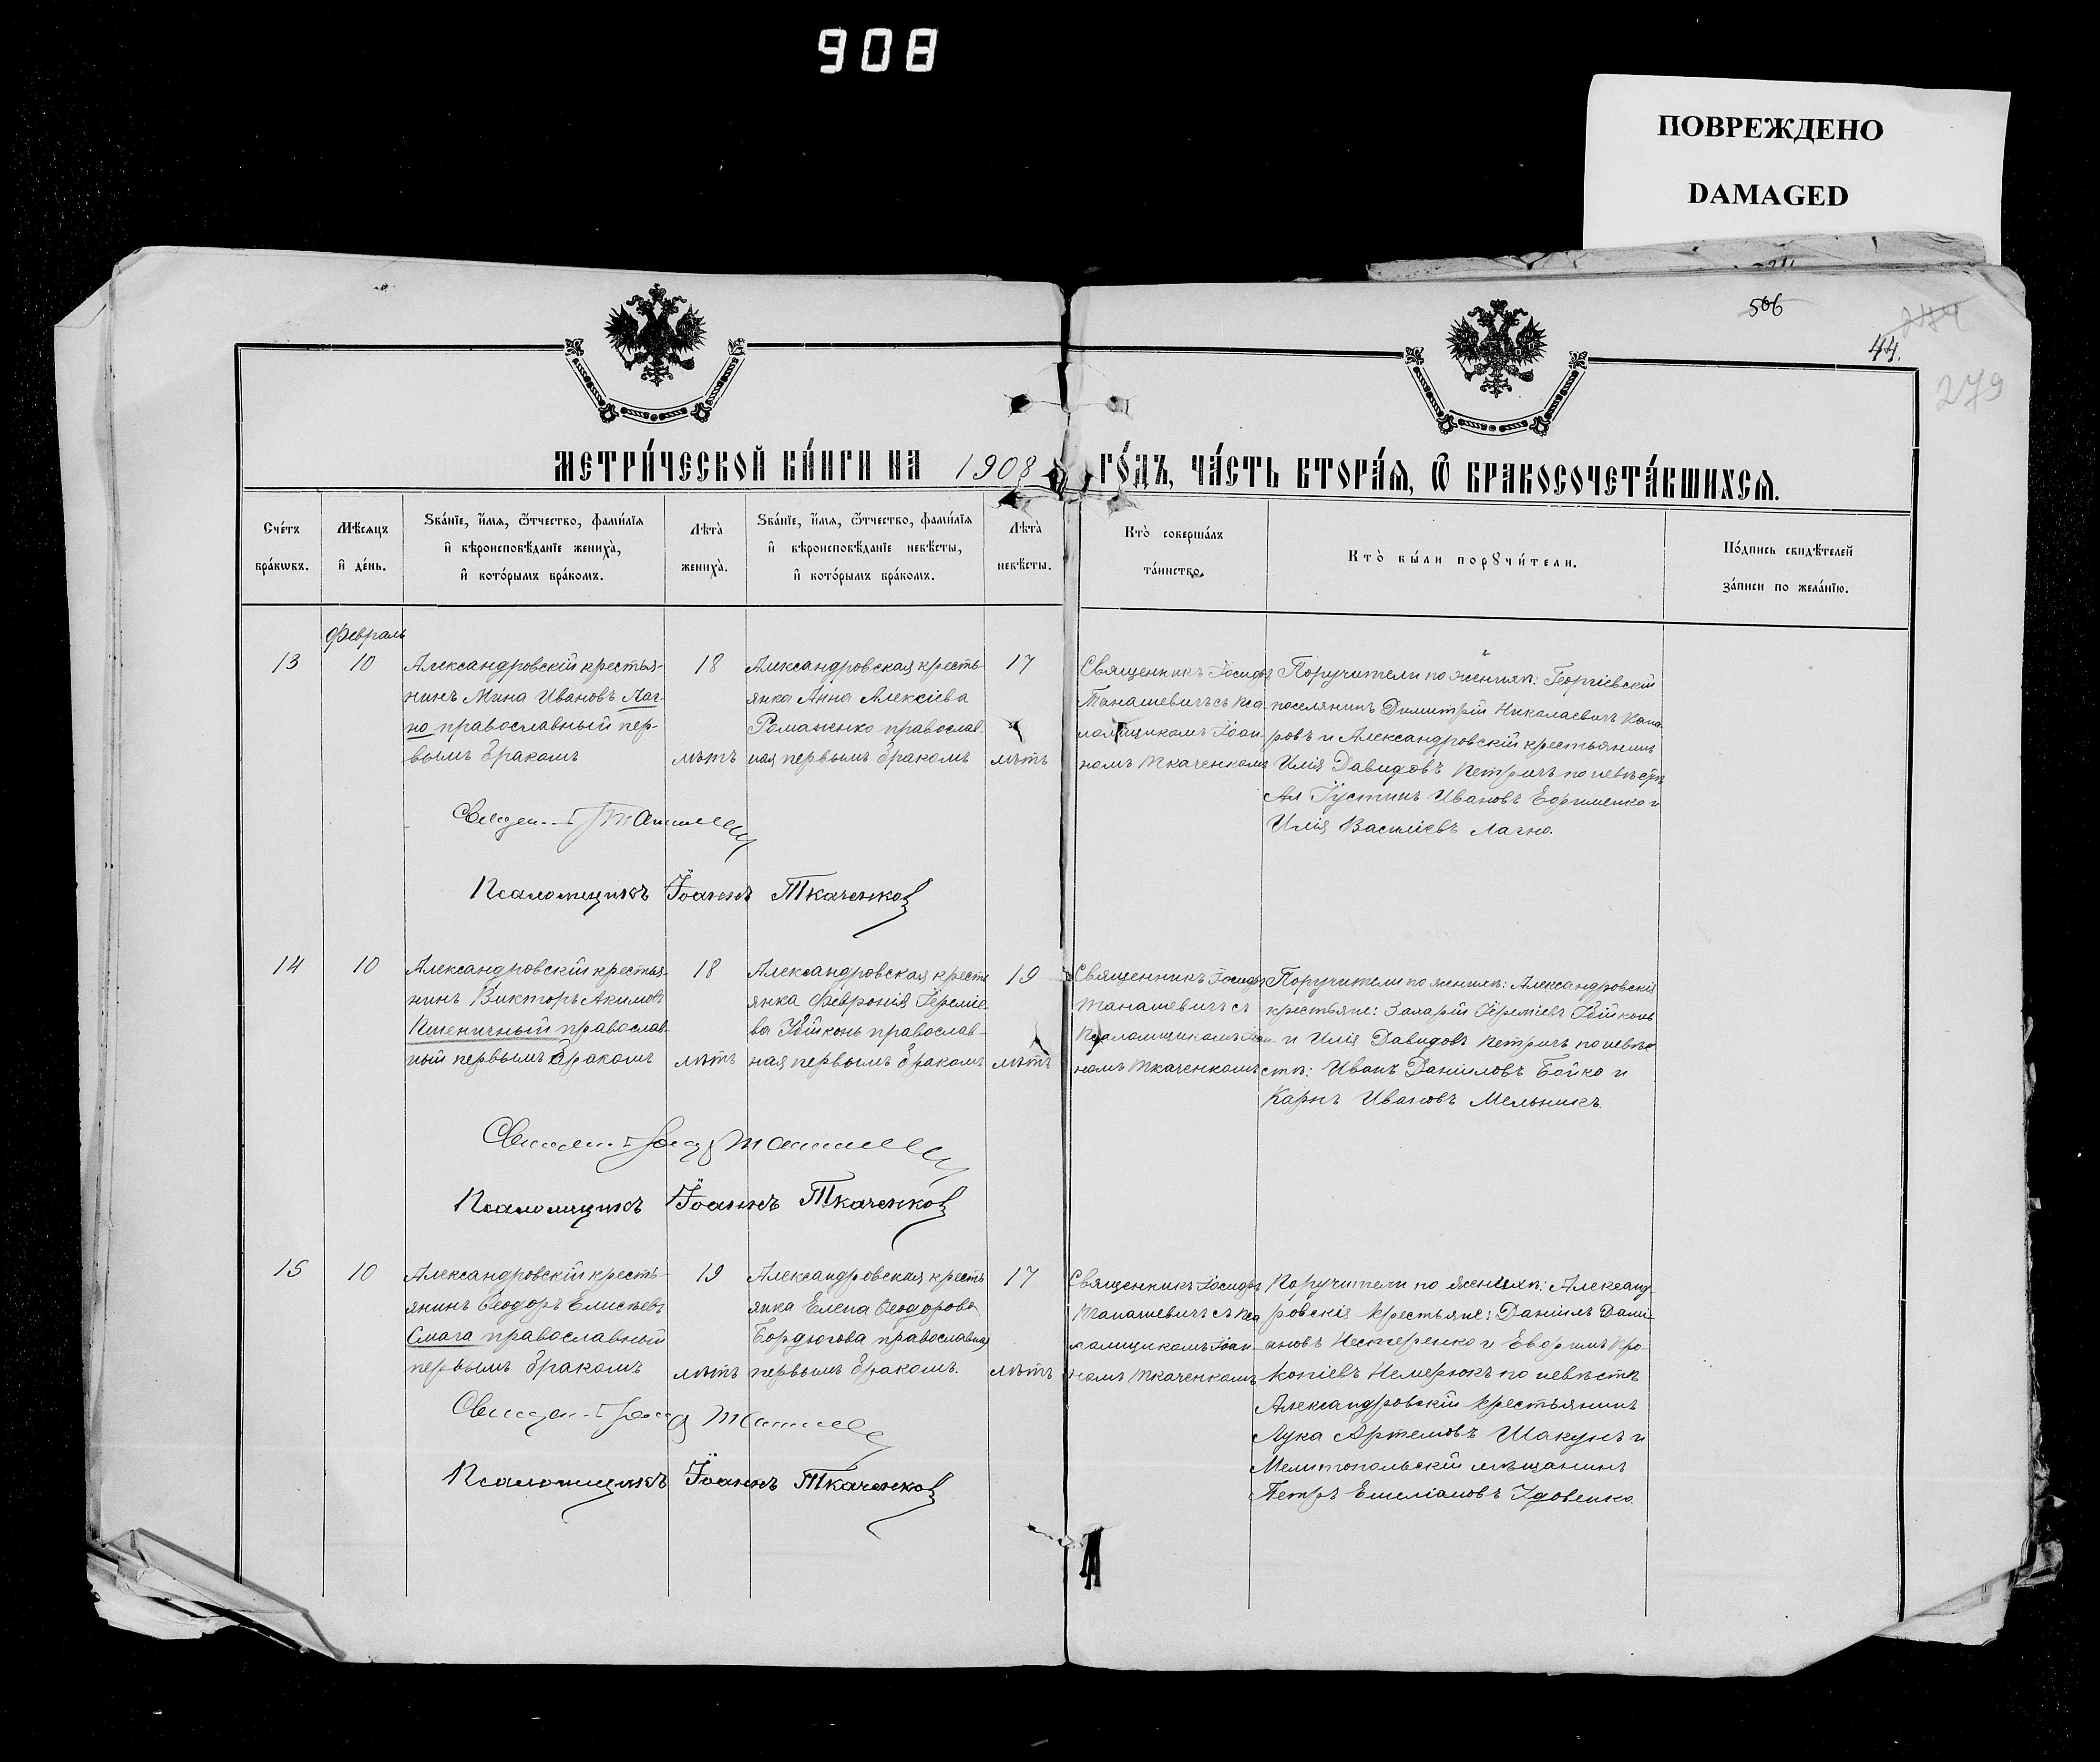 908
ПОВРЕЖДЕНО
DAMAGED
506
44.
279
МЕТРИ́ЧЕСКОЙ КНИ́ГИ НА 1908 ГО́ДЪ, ЧА́СТЬ ВТОРА́Я, Ѿ БРАКОСОЧЕТА́ВШИХСЯ.
Сче́тъ
бра́кѡвъ.
Мѣ́сяцъ
и҆ де́нь.
Зва́нїе, и҆́мя, ѻ҆́тчество, фами́лїя
и҆ вѣроисповѣ́данїе жениха̀,
и҆ кото́рымъ бра́комъ.
Лѣта̀
жениха̀.
Зва́нїе, и҆́мя, ѻ҆́тчество, фами́лїя
и҆ вѣроисповѣ́данїе невѣ́сты,
и҆ кото́рымъ бра́комъ.
Лѣта̀
невѣ́сты.
Кто̀ соверша́лъ
та́инство.
Кто̀ бы́ли порꙋчи́тели.
По́дпись свидѣ́телей
за́писи по жела́нїю.
Февраль
13
10
Александровскій крестья-
нинъ Мина Ивановъ Лаг-
но православный пер-
вымъ бракомъ
18
лѣтъ
Александровская кресть-
янка Анна Алексіева
Романенко православ-
ная первымъ бракомъ
17
лѣтъ
Священникъ Іосифъ
Танашевичъ съ пса-
ломщикомъ Іоан-
номъ Ткаченкомъ
Поручители по женихѣ: Георгіевскій
поселянинъ Димитрій Николаевичъ
и Александровскій крестьянинъ
Илія Давидовъ Петричъ по невѣстѣ
Іустинъ Ивановъ Ефименко и
Илія Василіевъ Лагно.
Псаломщикъ Іоаннъ Ткаченко
14
10
Александровскій крестья-
нинъ Викторъ Акимовъ
Пшеничный православ-
ный первымъ бракомъ
18
лѣтъ
Александровская кресть-
янка Февронія Іереміе-
ва православ-
ная первымъ бракомъ
19
лѣтъ
Священникъ Іосифъ
Танашевичъ съ
Псаломщикомъ Іоан-
номъ Ткаченкомъ
Поручители по женихѣ: Александровскіе
крестьяне: Іереміевъ
и Илія Давидовъ Петричъ по невѣ-
стѣ: Иванъ Даніиловъ Бойко и
Карпъ Ивановъ Мельникъ.
Псаломщикъ Іоаннъ Ткаченко
15
10
Александровскій кресть-
янинъ Ѳеодоръ Елисѣевъ
Смага православный
первымъ бракомъ
19
лѣтъ
Александровская кресть-
янка Елена Ѳеодорова
Бордюгова православная
первымъ бракомъ.
17
лѣтъ
Священникъ Іосифъ
Танашевичъ съ пса-
ломщикомъ Іоан-
номъ Ткаченкомъ
Поручители по женихѣ: Александ-
ровскія крестьяне: Даніилъ Дамі-
ановъ Нестеренко и Евфимъ Про-
копіевъ Немерюкъ по невѣстѣ
Александровскій крестьянинъ
Лука Артемовъ Шакунъ и
Мелитопольскій мѣщанинъ
Петръ Емеліановъ Удовенко.
Псаломщикъ Іоаннъ Ткаченко